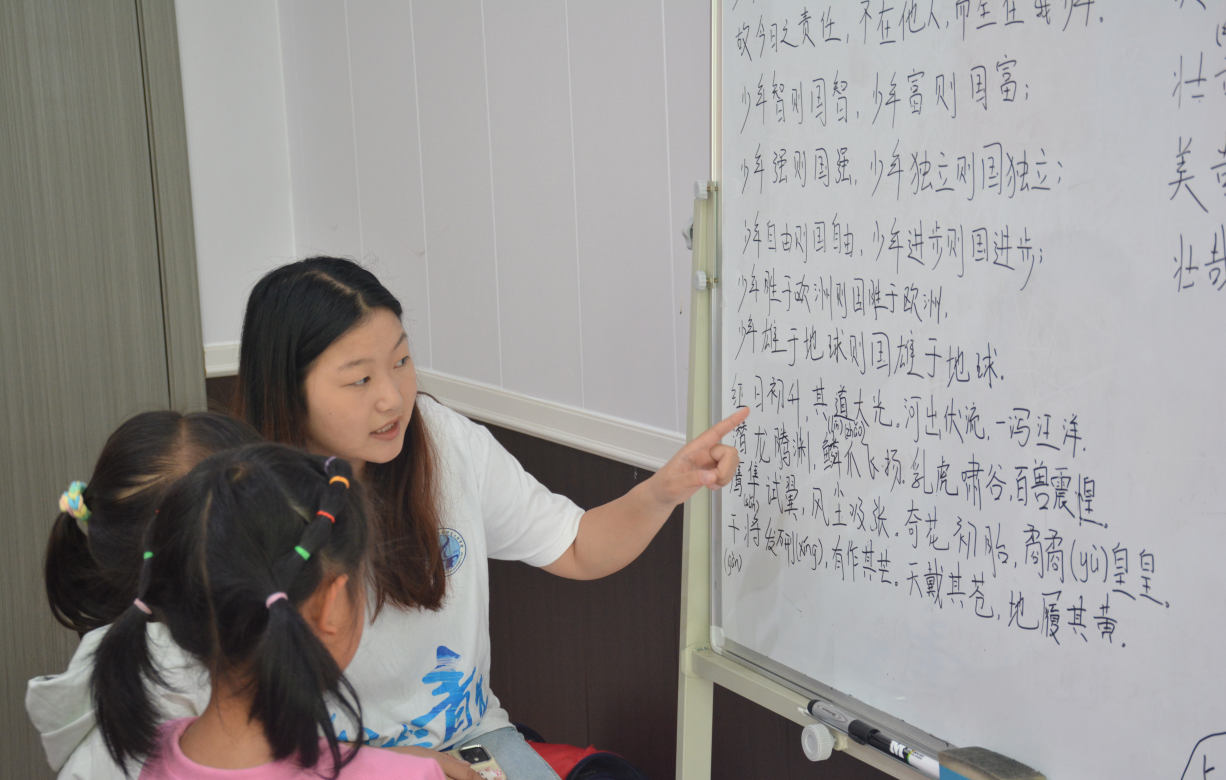 故今日之责任，不在他人，而全在我少年.
少年智则国智，少年富则国富；
少年强则国强，少年独立则国独立；
少年自由则国自由，少年进步则国进步；
少年胜于欧洲则国胜于欧洲，
少年雄于地球则国雄于地球.
红日初升，其道大光，河出伏流，一泻汪洋.
潜龙腾渊，鳞爪飞扬.乳虎啸谷，百兽震惶.
鹰隼试翼，风尘吸张.奇花初胎，矞矞(yù)皇皇.
干将发硎(xíng)，有作其芒.天戴其苍，地履其黄.
(gān)
壮
美
壮哉